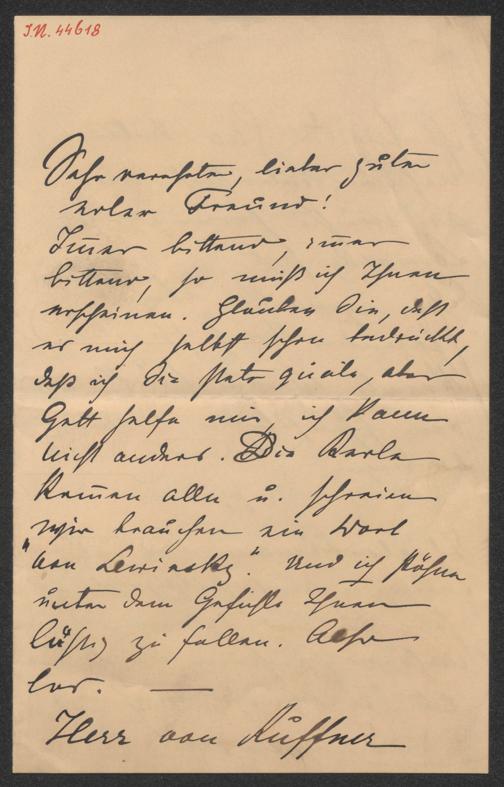 I.N. 44618
Sehr verehrter, lieber guter
edler Freund!
Im̅er bittend, im̅er
bittend, so muß ich Ihnen
erscheinen. Glauben Sie, daß
es mich selbst schon bedrückt,
daß ich Sie stets quäle, aber
Gott helfe mir, ich kann
nicht anders. Die Kerle
kom̅en alle u. schreien
"wir brauchen ein Wort
von Lewinsky". Und ich stöhne
unter dem Gefühle Ihnen
lästig zu fallen. Also
los. —
Herr von Kuffner